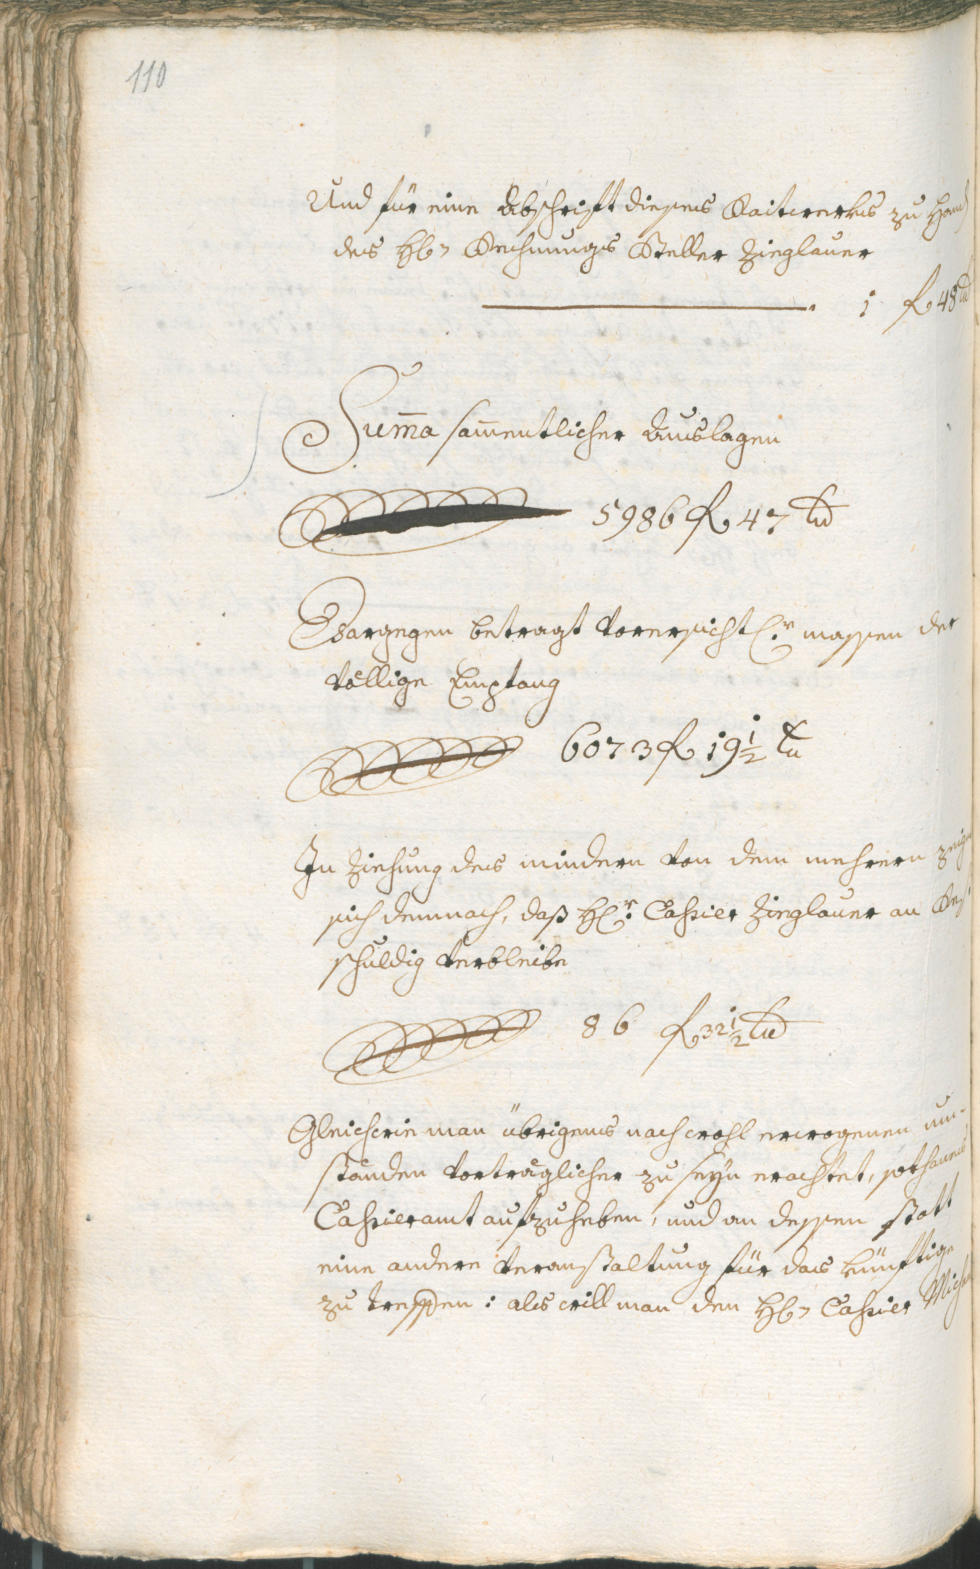 110
Und für eine Abschrift dieses Raitwerks zu Hand
des H: Rechnungs Steller Zieglauer
1 f 48 xr
Suma samentlicher Auslagen
5986 f 47 xr
Dargegen betragt vorersicht: massen der
völlige Empfang
6073 f 19 1/2 xr
In Ziehung des mindern von dem mehrern zeig
sich demnach, daß H: Cassier Zieglauer an Rest
schuldig verbleibe
86 f 32 1/2 xr
Gleichwie man übrigens nach wohl erwogenen um-
ständen vorträglicher zu seyn erachtet, sothanes
Cassieramt aufzuheben, und an dessen statt
eine andere Veranstaltung für das künftige
zu treffen: als will man den H: Cassier Mich